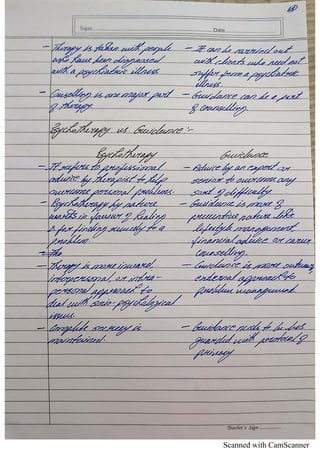 Topic
Date
- Therapy is taken with people
who have been diagnosed
with a psychiatric illness
- Counselling is one major part
of therapy.
- It can be carried out
with clients who need not
suffer from a psychiatric
illness.
- Guidance can be a part
of counselling.
Psychotherapy vs Guidance :-
Psychotherapy
- It refers to professional
advice by therapist to help
overcome personal problems.
- Psychotherapy by nature
works in favour of healing
& for finding remedy to a
problem.
- The
- Therapy is more inward
interpersonal, or intra-
personal approach to
deal with socio-psychological
issues.
- Complete secrecy is
maintained.
Guidance
- Advice by an expert or
senior to overcome any
sort of difficulty
- Guidance is more of
preventive nature like
lifestyle management
financial advice or career
counselling.
- Guidance is more outward
external approach to
problem management
- Guidance needs to be less
guarded with protocol of
privacy
Teacher's Sign
Scanned with CamScanner